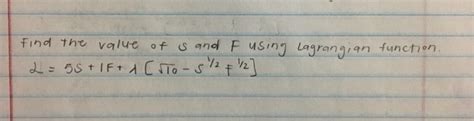 Find the value of S and F using Lagrangian function.
L = 5S + 1F + λ [√10 - S^1/2 F^1/2]